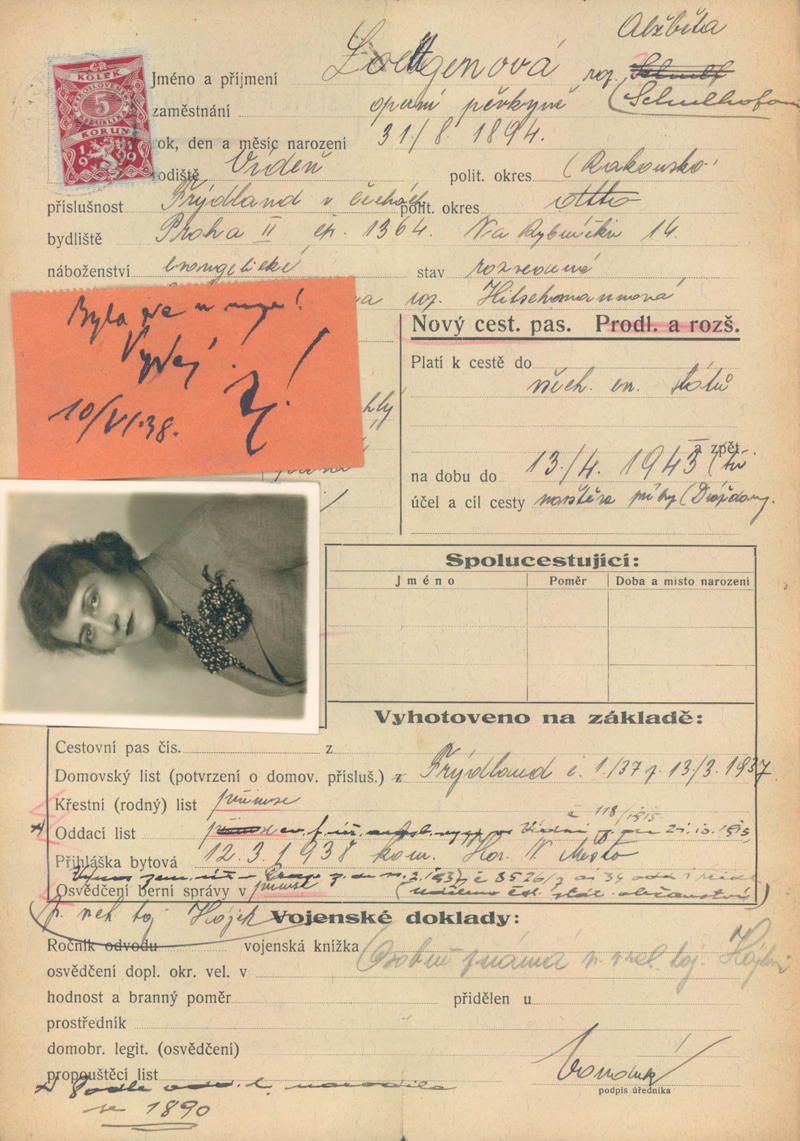 Alžběta
Jméno a příjmení Loeltgenová roz. Schulhofová
ČR
KOLEK
ČESKOSLOVENSKÁ
5
REPUBLIKA
KORUN
19
zaměstnání operní pěvkyně
rok, den a měsíc narození 31/8. 1894.
rodiště Vídeň polit. okres (Rakousko)
příslušnost Frýdland v Čechách polit. okres
bydliště Praha II čp. 1364. Na Rybníčku 14.
náboženství evangelické stav rozvedená
roz. Hitschmannová
Byla zde u mne!
Vydej!
10/VI.38.
Nový cest. pas. Prodl. a rozš.
Platí k cestě do
všech ev. států
a zpět
na dobu do 13./4. 1943
účel a cíl cesty návštěva
Spolucestující:
Jméno Poměr Doba a místo narození
Vyhotoveno na základě:
Cestovní pas čís. z
Domovský list (potvrzení o domov. přísluš.) z Frýdland č. 1./37 z 13/3. 1937.
Křestní (rodný) list přinese
č. 118/1915
Oddací list
Přihláška bytová 12. 3. 1938 kom. Hor. N. Město
Osvědčení berní správy v
Vojenské doklady:
Ročník odvodu vojenská knížka Osobně známá
osvědčení dopl. okr. vel. v
hodnost a branný poměr přidělen u
prostředník
domobr. legit. (osvědčení)
propouštěcí list
podpis úředníka
Podle odd. l. narozila
se 1890